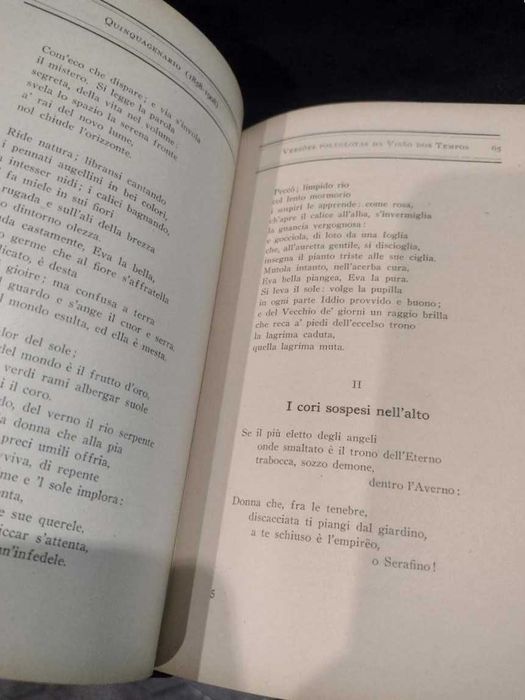 QUINQUAGENARIO (1858-1908)
Com'eco che dispare; e via s'invola
il mistero. Si legge la parola
segreta, della vita nel volume:
svela lo spazio la serena fronte
a' rai del novo lume,
nol chiude l'orizzonte.
Ride natura; libransi cantando
i pennati angellini in bei colori,
intesser nidi; i calici bagnando,
fa miele in sui fiori
rugada e sull'ali della brezza
dintorno olezza.
da castamente, Eva la bella,
germe che al fiore s'affratella
licato, è desta
gioire; ma confusa a terra
guardo e s'ange il cuor e serra.
l mondo esulta, ed ella è mesta.
lor del sole;
del mondo è il frutto d'oro,
verdi rami albergar suole
i il coro.
do, del verno il rio serpente
a donna che alla pia
preci umili offria,
vviva, di repente
me e 'l sole implora:
nta,
e sue querele,
iccar s'attenta,
n'infedele.
VERSÕES POLYGLOTAS DA VISÃO DOS TEMPOS 65
Peccò; limpido rio
col lento mormorio
i sospiri le apprende: come rosa,
ch'apre il calice all'alba, s'invermiglia
la guancia vergognosa:
e gocciola, di loto da una foglia
che, all'auretta gentile, si discioglia,
insegna il pianto triste alle sue ciglia.
Mutola intanto, nell'acerba cura,
Eva bella piangea, Eva la pura.
Si leva il sole: volge la pupilla
in ogni parte Iddio provvido e buono;
e del Vecchio de' giorni un raggio brilla
che reca a' piedi dell'eccelso trono
la lagrima caduta,
quella lagrima muta.
II
I cori sospesi nell'alto
Se il più eletto degli angeli
onde smaltato è il trono dell'Eterno
trabocca, sozzo demone,
dentro l'Averno:
Donna che, fra le tenebre,
discacciata ti piangi dal giardino,
a te schiuso è l'empirëo,
o Serafino!
5